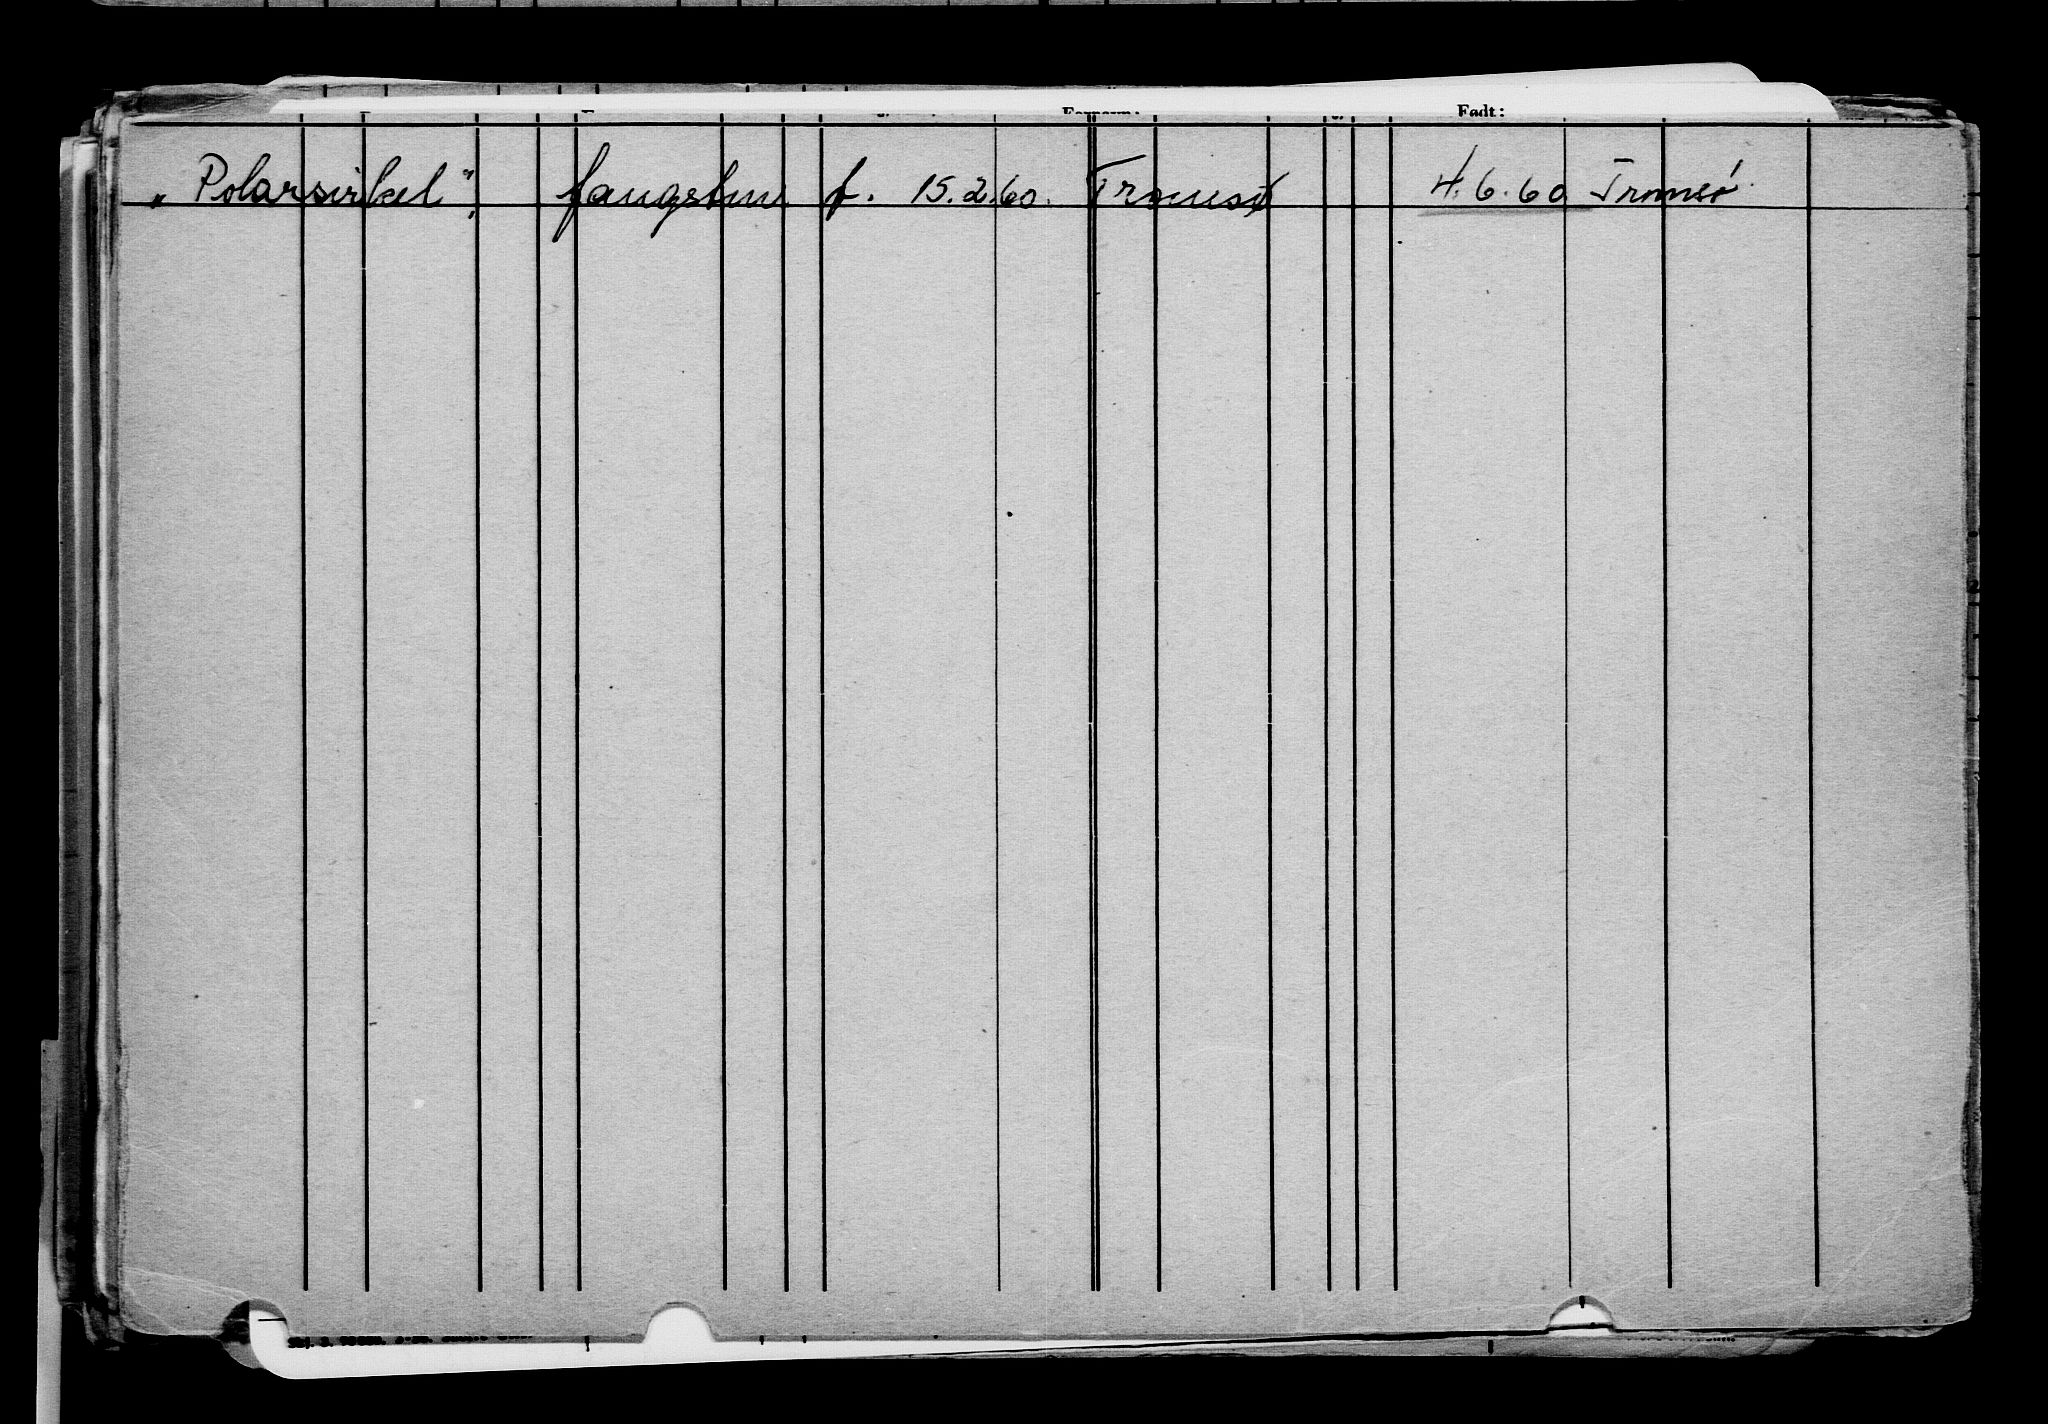 Født:
„Polarsirkel" fangstm f. 15.2.60. Tromsø 4.6.60 Tromsø